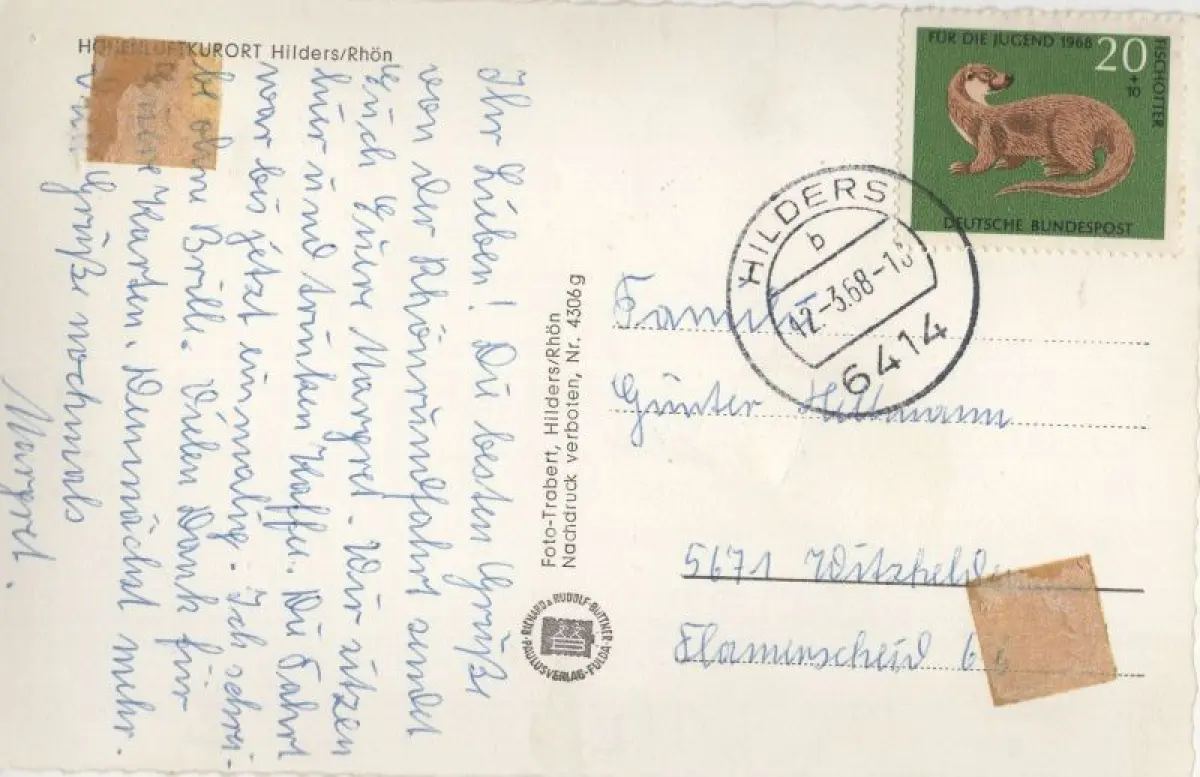 HÖHENLUFTKURORT Hilders/Rhön
Ihr Lieben! Die besten Grüße
von der Rhönrundfahrt sendet
Euch Eure Margret. Wir sitzen
hier und trinken Kaffee. Die Fahrt
war bis jetzt einmalig. Ich schrei-
be ohne Brille. Vielen Dank für
Karten. Demnächst mehr.
Grüße nochmals
Margret.
Foto-Trabert, Hilders/Rhön
Nachdruck verboten, Nr. 4306g
RICHARD & RUDOLF BÜTTNER
PAULUSVERLAG-FULDA
FÜR DIE JUGEND 1968
20
+
10
FISCHOTTER
DEUTSCHE BUNDESPOST
HILDERS
b
12.-3.68-18
6414
Familie
Günter Hillmann
5671 Witzhelden
Flamerscheid 6